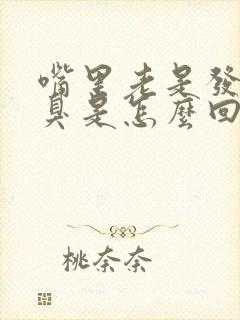 嘴里老是發
臭是怎麼回
桃奈奈